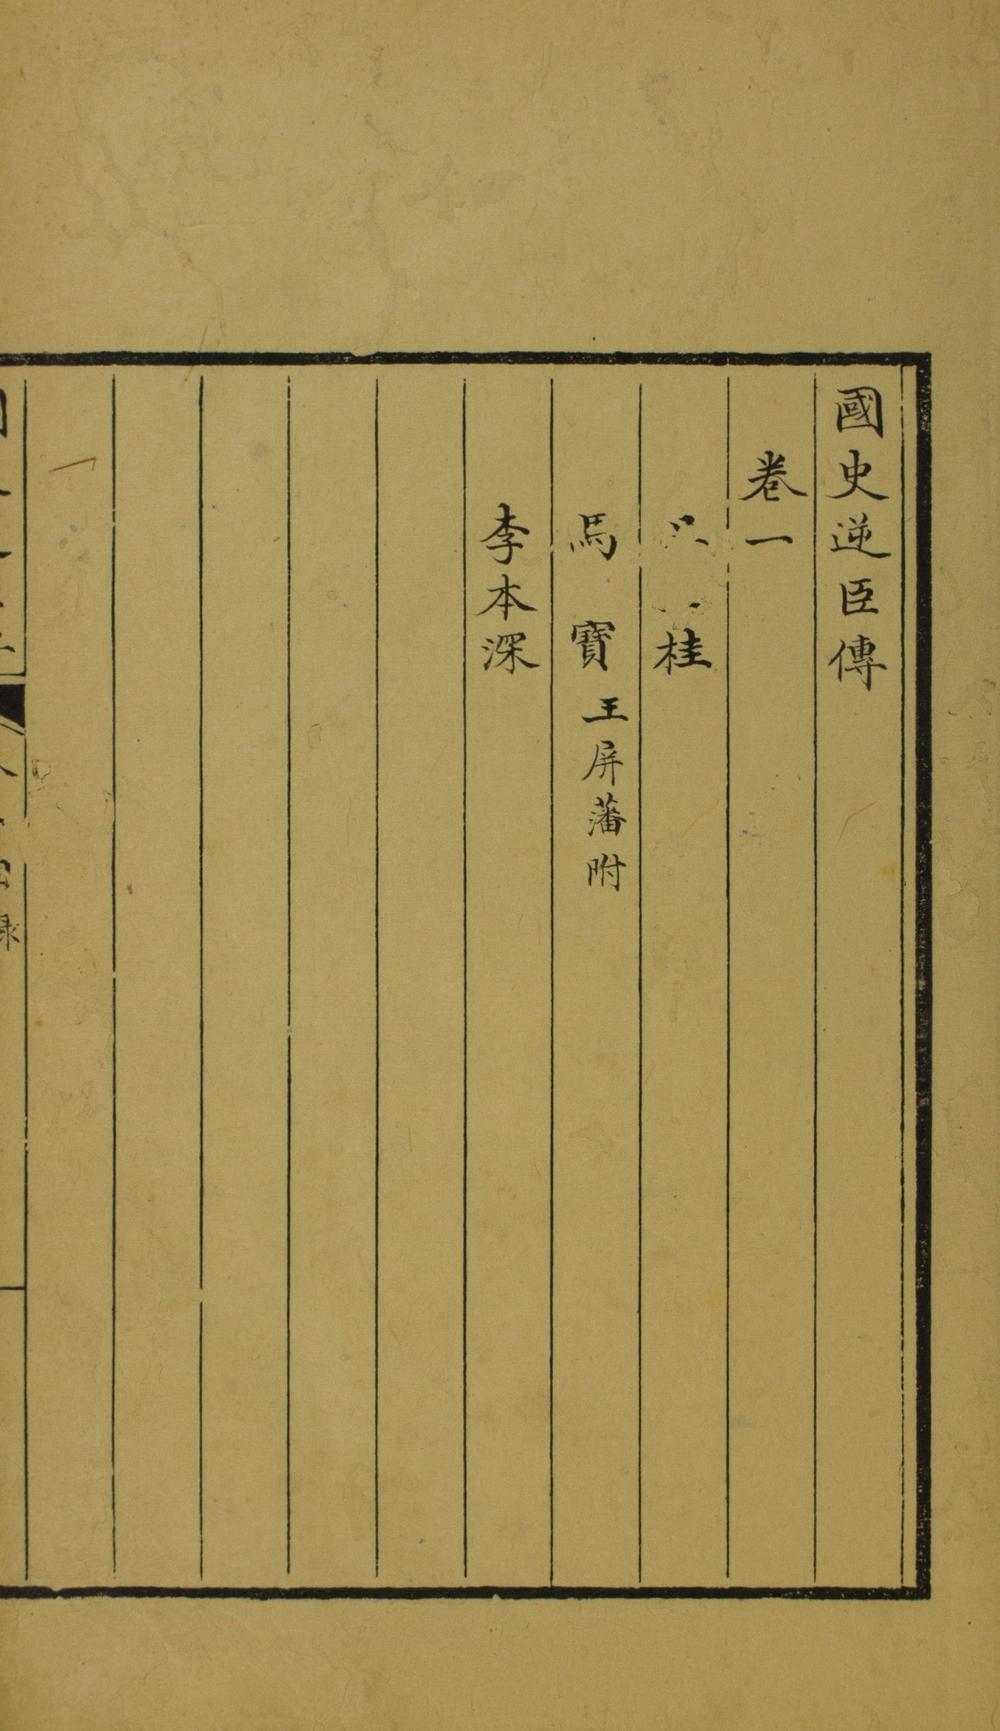 國史逆臣傳
卷一
桂
馬寶王屏藩附
李本深